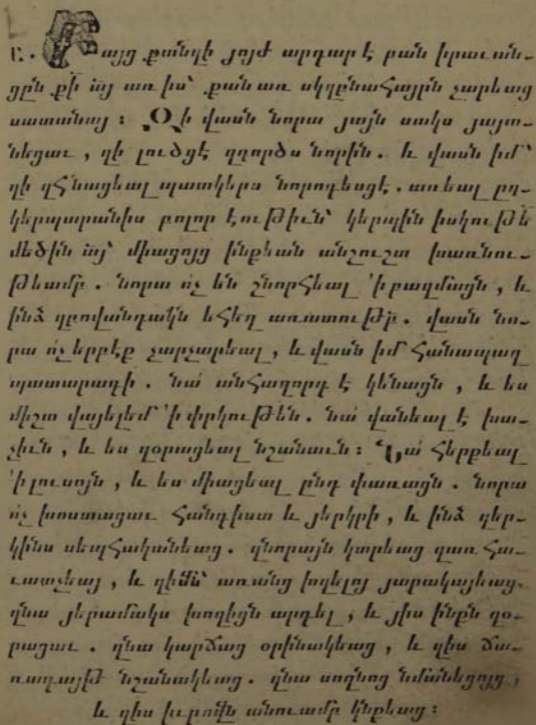 Բ. Բայց քանզի յոյժ արդար է բան իրաւան-
ցըն քի այ առ իս՝ քան առ սկզբնահայրն չարեաց
սատանայ : Զի վասն նորա յայն սակս յայտ-
նեցաւ , զի լուծցէ զգործս նորին . և վասն իմ՝
զի զհնացեալ պատկերս նորոգեսցէ . առեալ ըզ-
կերպարանիս բոլոր էութիւն՝ կերպին իսկութե
մեծին այ՝ միացոյց ինքեան անշուշտ խառնու-
թեամբ . նորա ոչ են շնորհեալ ՚ի բազմացն , և
ինձ զբովանդակն եհեղ առատութբ . վասն նո-
րա ոչ երբէք չարչարեալ , և վասն իմ հանապազ
պատարագի . նա անհաղորդ է կենացն , և ես
միշտ վայելեմ ՚ի փրկութեն . նա վանեալ է խա-
չիւն , և ես զօրացեալ նշանաւն : Նա հերքեալ
՚ի լուսոյն , և ես միացեալ ընդ փառացն . նորա
ոչ խոստացաւ հանգիստ և յերկրի , և ինձ զեր-
կինս սեպհականեաց . զնորայն կտրեաց զառ հա-
ւատչեայ , և զիմն՝ առանց խզելոյ յարակայեաց .
զնա յերամակս խոզիցն արգել , և յիս ինքն զօ-
րացաւ . զնա կարճաց օրինակեաց , և զիս ճա-
ռագայթ նշանակեաց . զնա սողնոց նմանեցոյց ,
և զիս իւրովն անուամբ կնքեաց :